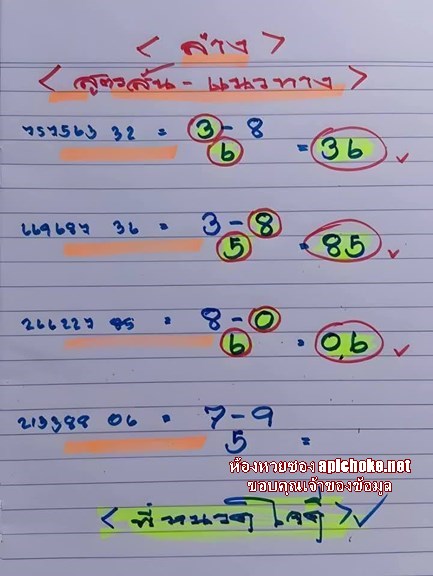 < ล่าง >
< สูตรลั้น - แนวทาง >
757563 32 = 3 - 8
6 = 36 ✓
669687 36 = 3 - 8
5 = 85 ✓
266227 85 = 8 - 0
6 = 06 ✓
219388 06 = 7 - 9
5 =
ห้องหวยซอง apichoke.net
ขอบคุณเจ้าของข้อมูล
< พี่หนวด ใจดี > ✓